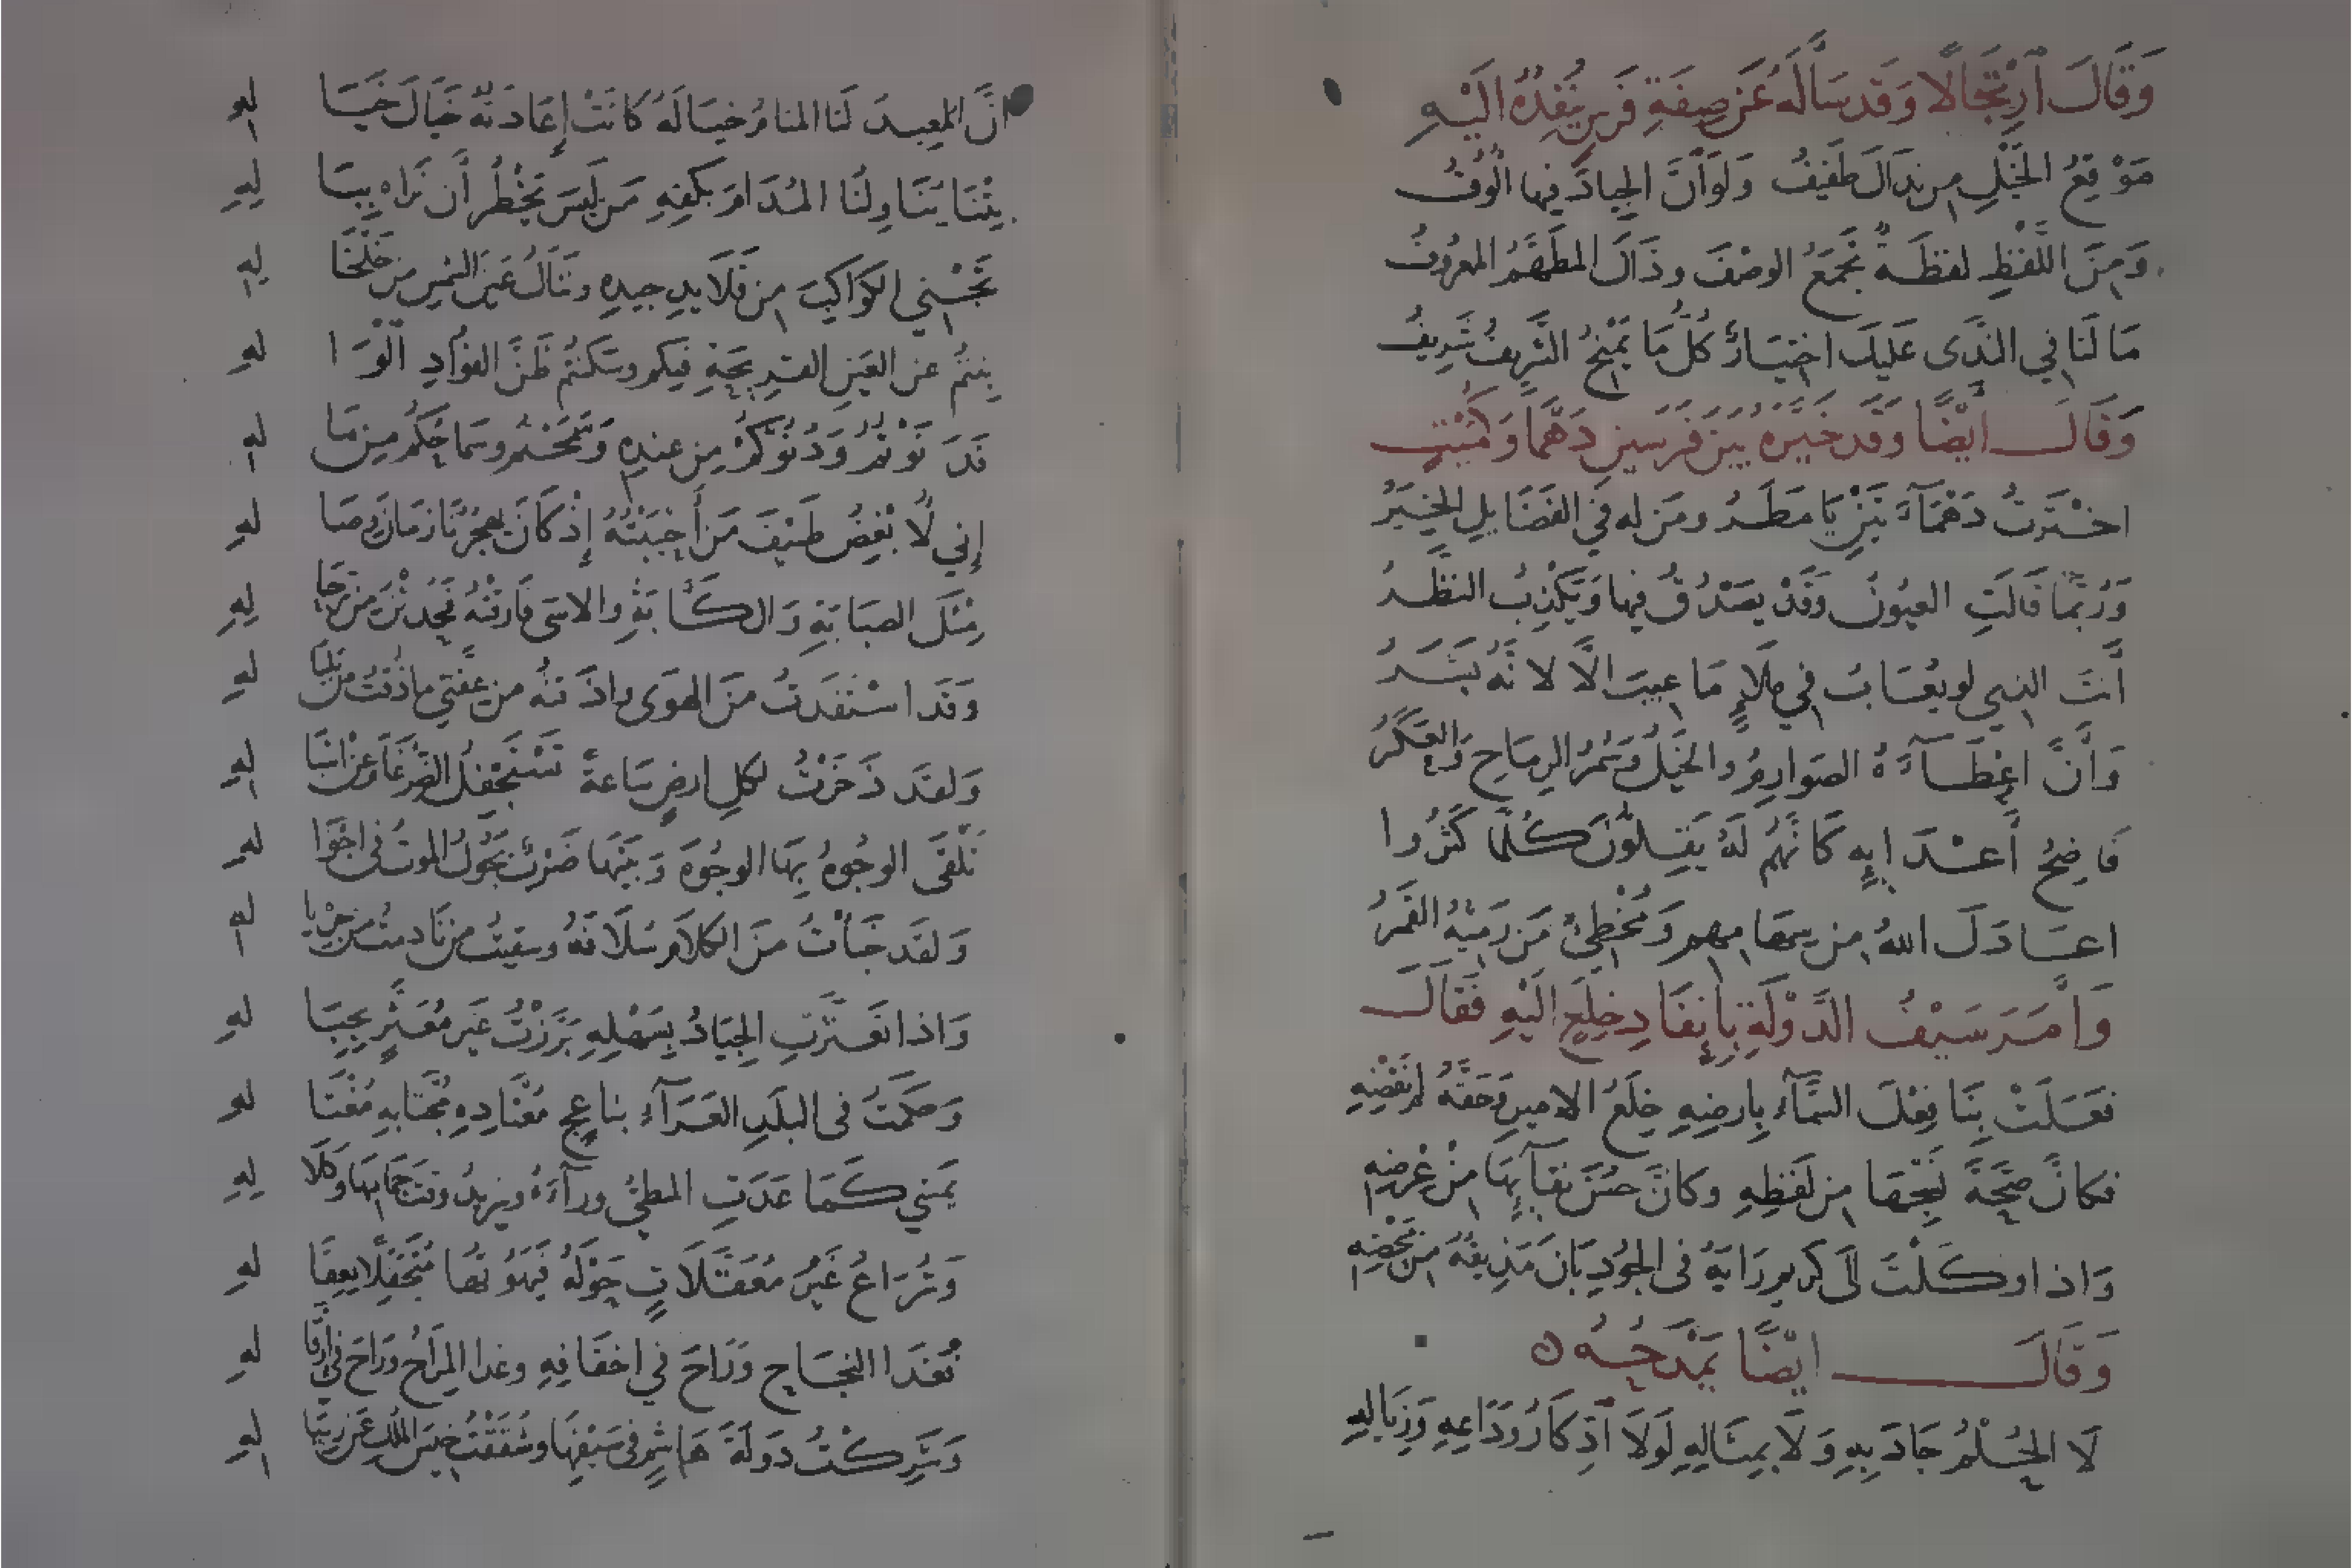 وَقَالَ ارْتِجَالًا وَقَد سَأَلَهُ عَن صِفَةِ فَرَسٍ يُنفِذُهُ اِلَيْهِ
مَوْقِعُ الخَيْلِ مِن نَدَاكَ طَفِيفُ وَلَوْ أَنَّ الجِيادَ فِيها اُلُوفُ
وَمِنَ اللَّفْظِ لفظَةٌ تَجْمَعُ الوصْفَ وذَاكَ المُطَهَّمُ المعرُوفُ
مَا لَنَا فِي النَّدَى عَلَيكَ اختِيَارٌ كُلُّ مَا يَمْنَحُ الشَّرِيفُ شَرِيفُ
وَقَالَ اَيْضًا وَقَد خَيَّرَهُ بَيْنَ فَرَسَينِ دَهْمَا وَكُمَيْتٍ
اختَرتُ دَهْمَآءَ تَيْنِ يَا مَطَرُ ومَن له فِي الفَضَايِلِ الخِيَرُ
وَرُبَّمَا قَالَتِ العيُونُ وَقَدْ يصَدْقُ فيها وَيَكْذِبُ النظَرُ
أَنتَ الذِي لو يعُابُ فِي مَلَإٍ مَا عيبَ الَّا لاَنَّهُ بَشَرُ
وَأَنَّ اِعْطَآءَهُ الصَوارِمُ والخَيلُ وَسُمْرُ الرمَاحِ وَالعَكَرُ
فَاضِحُ أَعْدَايِهِ كَاَنَّهُم لَهُ يَقِلُّونَ كُلَّمَا كَثُرُوا
اعَاذَكَ اللهُ مِن سِهَامِهِم وَمُخْطِئٌ مَن رَمِيُّهُ القَمَرُ
وَاَمَرَ سَيْفُ الدَّوْلَةِ بِاِنفَاذِ خِلَعٍ اِلَيْهِ فَقَالَ
فعَلَتْ بِنَا فِعْلَ السَّمَآءِ بِارضِهِ خِلَعُ الامِيرِ وَحَقَّهُ لم نَقْضِهِ
فكَانَّ صِحَّةَ نَسْجِهَا مِن لَفظِهِ وكَانَّ حُسْنَ نقَآيِهَا مِنْ عِرْضِهِ
وَاذا وَكَلْتَ اِلَى كَرِيمٍ رَايَهُ فى الجُودِ بَانَ مَذِيقُهُ مِن مَحْضِهِ
وَقَالَ ايْضًا يَمْدَحُهُ
لَا الحُلْمُ جَادَ بِهِ وَلَا بمِثَالِهِ لَولَا اَذكَارُ وَدَاعِهِ وَزِيَالِهِ
انَّ المُعِيدَ لَنَا المنامُ خيَالَهُ كَانَتْ إِعَادَتُهُ خَيَالَ خَيَالِهِ
بِتْنَا يُنَاوِلُنَا المُدَامَ بِكَفِّهِ مَن لَيسَ يَخْطُرُ أَن نَرَاه بِبَالِهِ
نَجْنِي الكَوَاكِبَ مِن قَلَايِدِ جِيدِهِ ونَنَالُ عَينَ الشمسِ مِن خَلْخَالِهِ
بِنتُم عَنِ العَينِ القَرِيحَةِ فِيكُم وسَكَنتُم ظَنَّ الفُؤَادِ الوَالِهِ
فَدَنَوْتُمُ وَدُنُوُّكُمْ مِن عِندِهِ وَسَمَحتُم وسَمَاحُكُم مِن مَالِهِ
إِنِي لَاُبْغِضُ طَيْفَ مَن أَحْبَبْتُهُ إِذْ كَانَ يَهجُرُنَا زمَانَ وِصَالِهِ
مِثْلَ الصَبَابَةِ وَالكَآبَةِ والاسَى فَارَقْتُهُ فَحَدَثْنَ مِن تَرحَالِهِ
وَقَد اسْتَقَدتُ مِنَ الهَوَى واَذَقتُه مِن عِفَّتِي ما ذُقتُ مِن بَلبَالِهِ
وَلقَد ذَخَرْتُ لكُلِ ارضٍ سَاعَةً تَسْتَجْفِلُ الضِرْغَامَ عَنْ اشبَالِهِ
تَلْقَى الوجُوهُ بِهَا الوجُوهَ وَبَيْنَهَا ضَرْبٌ يَجُولُ الموتُ فى اَجْوَالِهِ
وَلقَد خَبَأْتُ مِنَ الكلَامِ سُلَافَهُ وسقيتُ مَن نَادمتُ مِن جِرْيَالِهِ
وَاذا تعَثَّرَتِ الجِيَادُ بِسَهْلِهِ بَرَّزْتُ غَيرَ مُعَثَّرٍ بِجِبَالِهِ
وَحكَمتُ فى البلَدِ العَرَآءِ بناعِجٍ مُعْتَادِهِ مُجْتَابِهِ مُغْتَالِهِ
يَمشِي كَمَا عَدَتِ المطِيُّ ورآءَهُ ويَزيدُ وقتَ جَمَامِهَا وَكَلَالِهِ
وَتُرَاعُ غَيرَ مُعَقَّلَاتٍ حَوْلَهُ فَيَفُوتُهَا مُتَجَفِّلًا بِعِقَالِهِ
فَغَدَا النجَاحُ وَرَاحَ فِي اخفَافِهِ وغدا المِرَاحُ وَرَاحَ فِي اِرقَالِهِ
وَشَرِكْتُ دَولَةَ هَاشِمٍ فى سَيْفِهَا وَشَقَقْتُ خِيسَ المُلكِ عَن رِيبَالِهِ